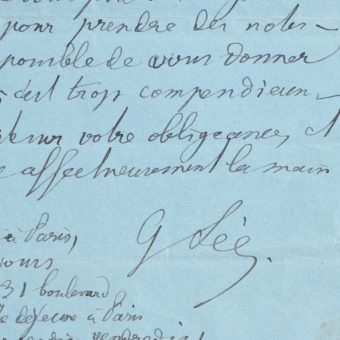 pour prendre des notes
possible de vous donner
c'est trop compendieux.
sur votre obligeance, et
affectueusement la main
G Sée.
à Paris,
31 boulevard
déjeune à Paris
vendredi!